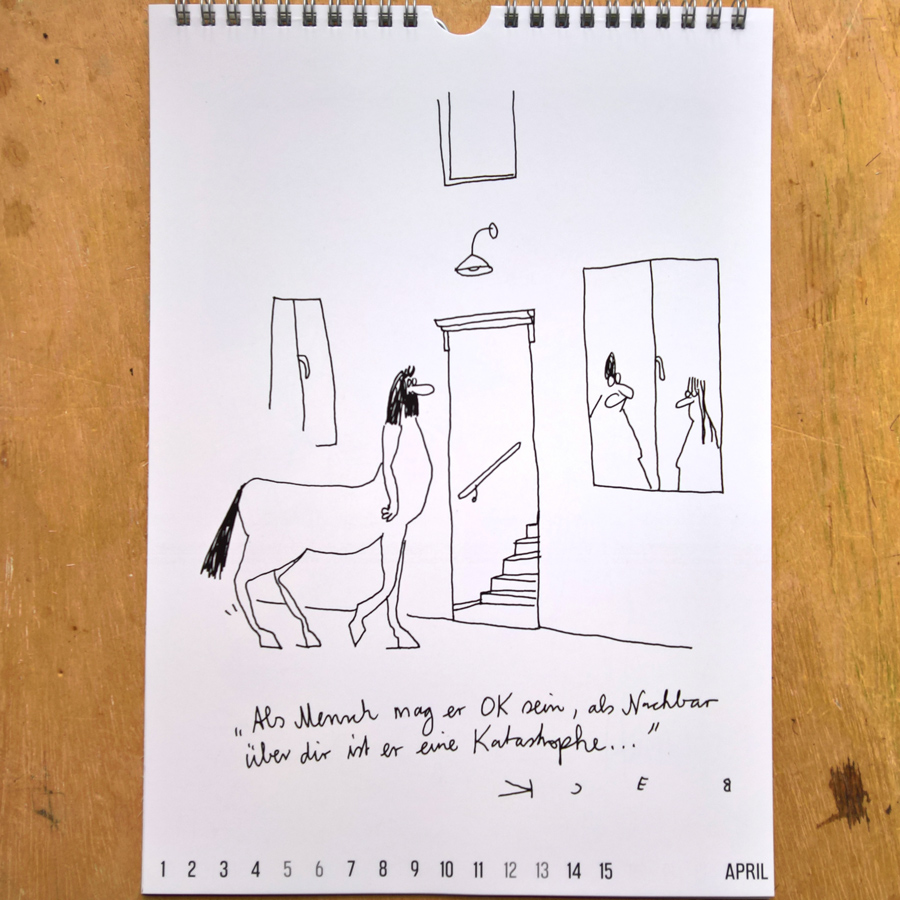 „Als Mensch mag er OK sein, als Nachbar
über dir ist er eine Katastrophe..."
1 2 3 4 5 6 7 8 9 10 11 12 13 14 15 APRIL